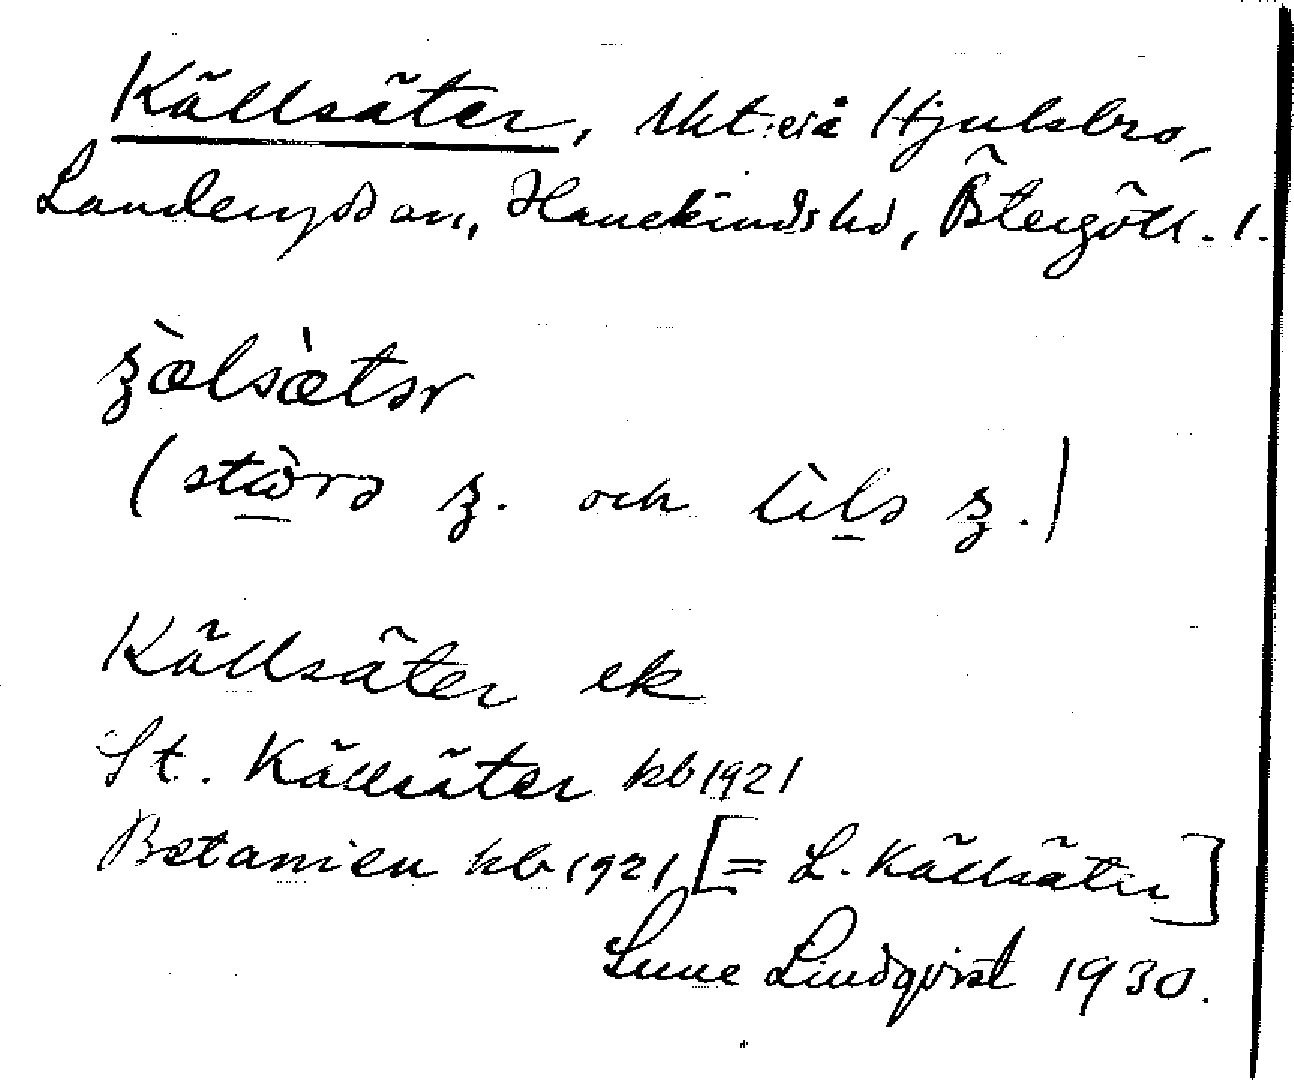 Källsäter, Utkt: eiå Hjulsbro,
Landeryd sn, Hanekinds hd, Östergötl. l.
ʒælsætər
(storə ʒ. och lilə ʒ.)
Källsäter ek
St. Källsäter kb 1921
Betanien kb 1921 [= L. Källsäter]
Sune Lindqvist 1930.